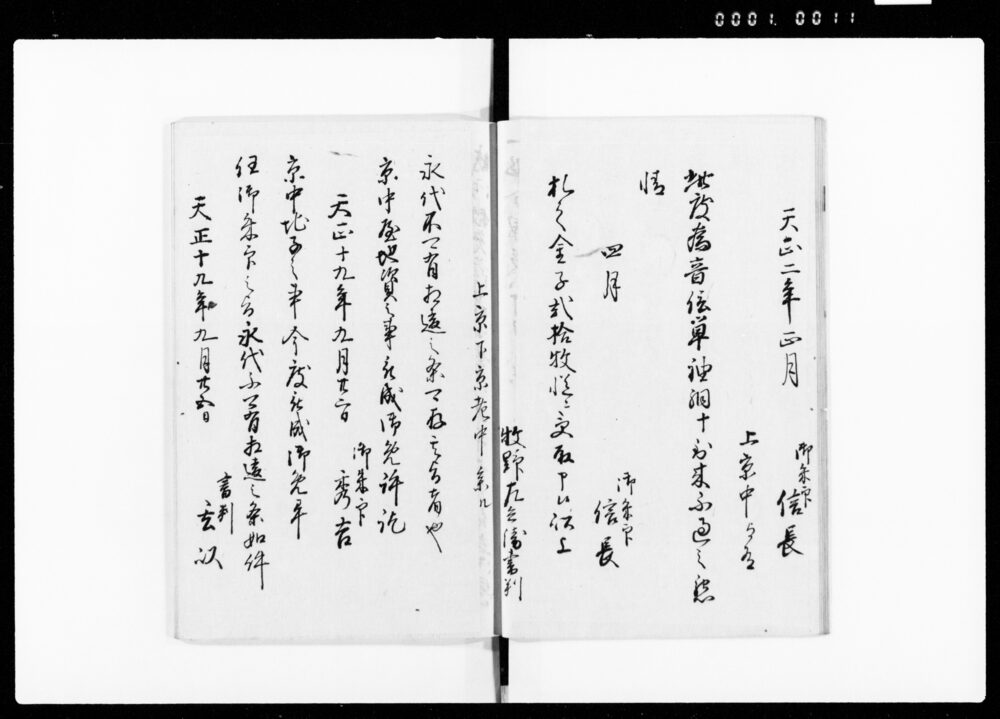 0001.0011
天正二年正月
御朱印
信長
上京中
此度為音信単袖細十到来不過之懇
情
四月
御朱印
信長
札之金子弐拾枚慥ニ受取申候以上
牧野左兵衛書判
上京下京老中参ル
永代不可有相違之条可存其旨者也
京中屋地資之事被成御免許訖
天正十九年九月廿二日
御朱印
秀吉
京中地子之事今度被成御免畢
任御朱印之旨永代不可有相違之条如件
天正十九年九月廿五日
書判
玄以